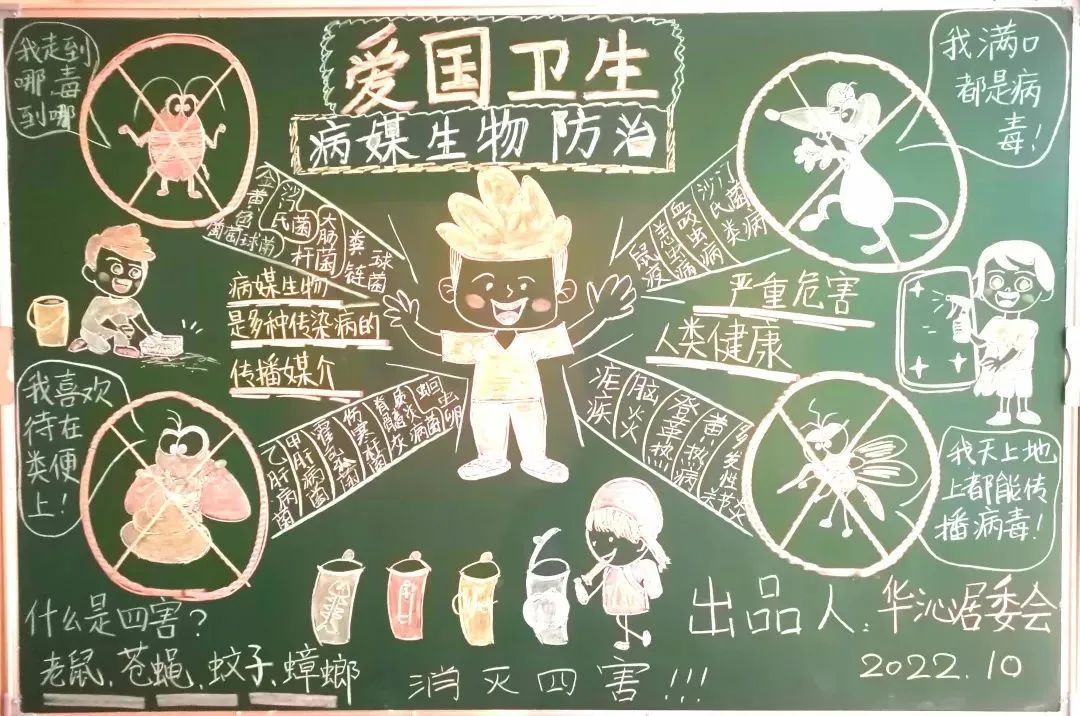 爱国卫生
病媒生物防治
我走到
哪毒
到哪
我满口
都是病
毒!
金黄色
葡萄球菌
沙氏菌
大肠杆菌
粪链球菌
鼠疫
恙虫病
血吸虫病
沙门氏菌类病
病媒生物
是多种传染病的
传播媒介
严重危害
人类健康
我喜欢
待在
类便
上!
乙肝病菌
甲肝病菌
伤寒杆菌
脊髓灰质炎病菌
蛔虫卵
疟疾
脑火
登革热
黄热病
多发性关节炎
我天上地
上都能传
播病毒!
什么是四害?
老鼠、苍蝇、蚊子、蟑螂
消灭四害!!!
出品人:华沁居委会
2022.10